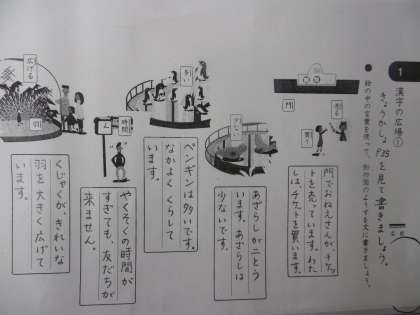 1
漢字の広場①
きょうかしょ P35 を見て書きましょう。
● 絵の中の言葉を使って、町の園のようすを文に書きましょう。
門
売る
買う
門でおねえさんが、チケッ
トを売っています。わた
しは、チケットを買います。
少ない
あざらしが二とう
います。あざらしは
少ないです。
多い
ペンギンは多いです。
なかよく くらして
います。
時間
やくそくの時間が
すぎても、友だちが
来ません。
広げる
羽
くじゃくが、きれいな
羽を大きく広げて
います。